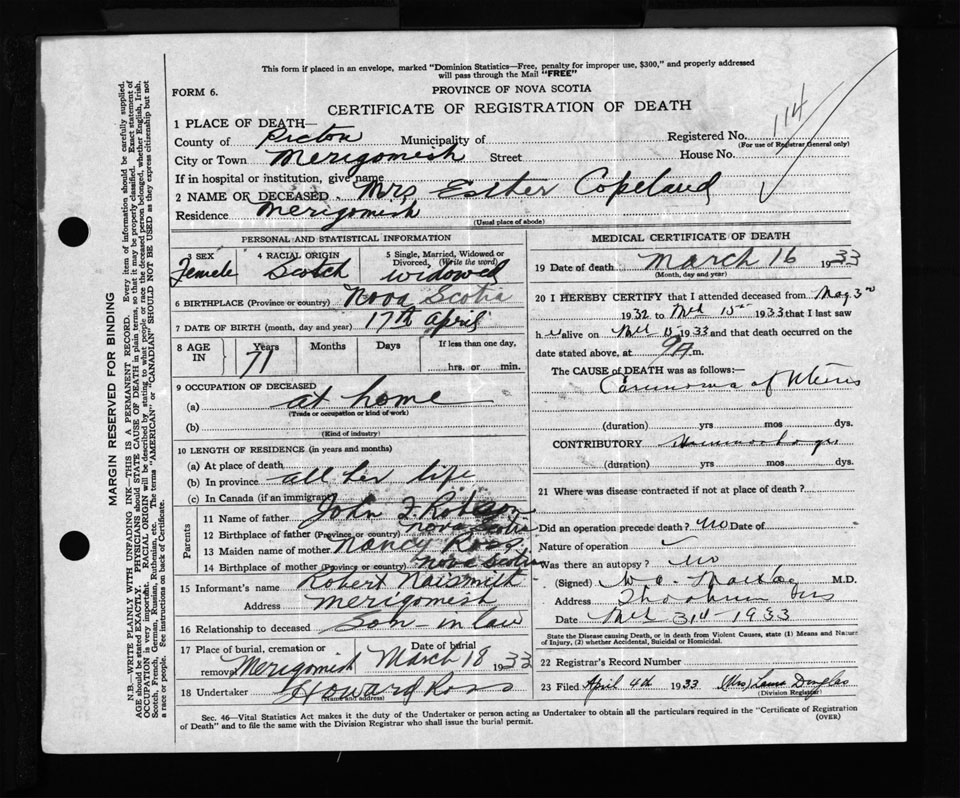 This form if placed in an envelope, marked "Dominion Statistics—Free, penalty for improper use, $300," and properly addressed
will pass through the Mail "FREE"
FORM 6.
PROVINCE OF NOVA SCOTIA
CERTIFICATE OF REGISTRATION OF DEATH
1 PLACE OF DEATH—
County of Pictou Municipality of Registered No. 114
(For use of Registrar General only)
City or Town Merigomish Street House No.
If in hospital or institution, give name
2 NAME OF DECEASED Mrs Esther Copeland
Residence Merigomish
(Usual place of abode)
PERSONAL AND STATISTICAL INFORMATION
3 SEX 4 RACIAL ORIGIN 5 Single, Married, Widowed or
Divorced, (Write the word)
Female Scotch widowed
6 BIRTHPLACE (Province or country) Nova Scotia
7 DATE OF BIRTH (month, day and year) 17th April
8 AGE IN Years Months Days If less than one day,
71 hrs. or min.
9 OCCUPATION OF DECEASED
(a) at home
(Trade or occupation or kind of work)
(b)
(Kind of industry)
10 LENGTH OF RESIDENCE (in years and months)
(a) At place of death
(b) In province all her life
(c) In Canada (if an immigrant)
Parents
11 Name of father John Robson
12 Birthplace of father (Province or country) Nova Scotia
13 Maiden name of mother Nancy Ross
14 Birthplace of mother (Province or country) Nova Scotia
15 Informant's name Robert Naismith
Address Merigomish
16 Relationship to deceased Son-in law
17 Place of burial, cremation or removal Date of burial
Merigomish March 18 1933
18 Undertaker Howard Ross
(Name and address)
MEDICAL CERTIFICATE OF DEATH
19 Date of death March 16 1933
(Month, day and year)
20 I HEREBY CERTIFY that I attended deceased from
1932 to Mch 15th 1933 that I last saw
h er alive on Mch 15 1933 and that death occurred on the
date stated above, at 9 A m.
The CAUSE of DEATH was as follows:—
Carcinoma of Uterus
(duration) yrs mos dys.
CONTRIBUTORY
(duration) yrs mos. dys.
21 Where was disease contracted if not at place of death?
Did an operation precede death? No Date of
Nature of operation
Was there an autopsy? No
(Signed) M.D.
Address Thorburn NS
Date Mch 31st 1933
State the Disease causing Death, or in death from Violent Causes, state (1) Means and Nature
of Injury, (2) whether Accidental, Suicidal or Homicidal.
22 Registrar's Record Number
23 Filed April 4th 1933 (Mrs) Laura Douglas
(Division Registrar)
Sec. 46—Vital Statistics Act makes it the duty of the Undertaker or person acting as Undertaker to obtain all the particulars required in the "Certificate of Registration
of Death" and to file the same with the Division Registrar who shall issue the burial permit.
(OVER)
MARGIN RESERVED FOR BINDING
N.B.—WRITE PLAINLY WITH UNFADING INK—THIS IS A PERMANENT RECORD. Every item of information should be carefully supplied.
AGE should be stated EXACTLY. PHYSICIANS should STATE CAUSE OF DEATH in plain terms, so that it may be properly classified. Exact statement of
OCCUPATION is very important. RACIAL ORIGIN will be described by stating to what people or race the deceased person belonged, whether English, Irish,
Scotch, French, German, Russian, Ruthenian, etc. The terms "AMERICAN" or "CANADIAN" SHOULD NOT BE USED as they express citizenship but not
a race or people. See instructions on back of Certificate.